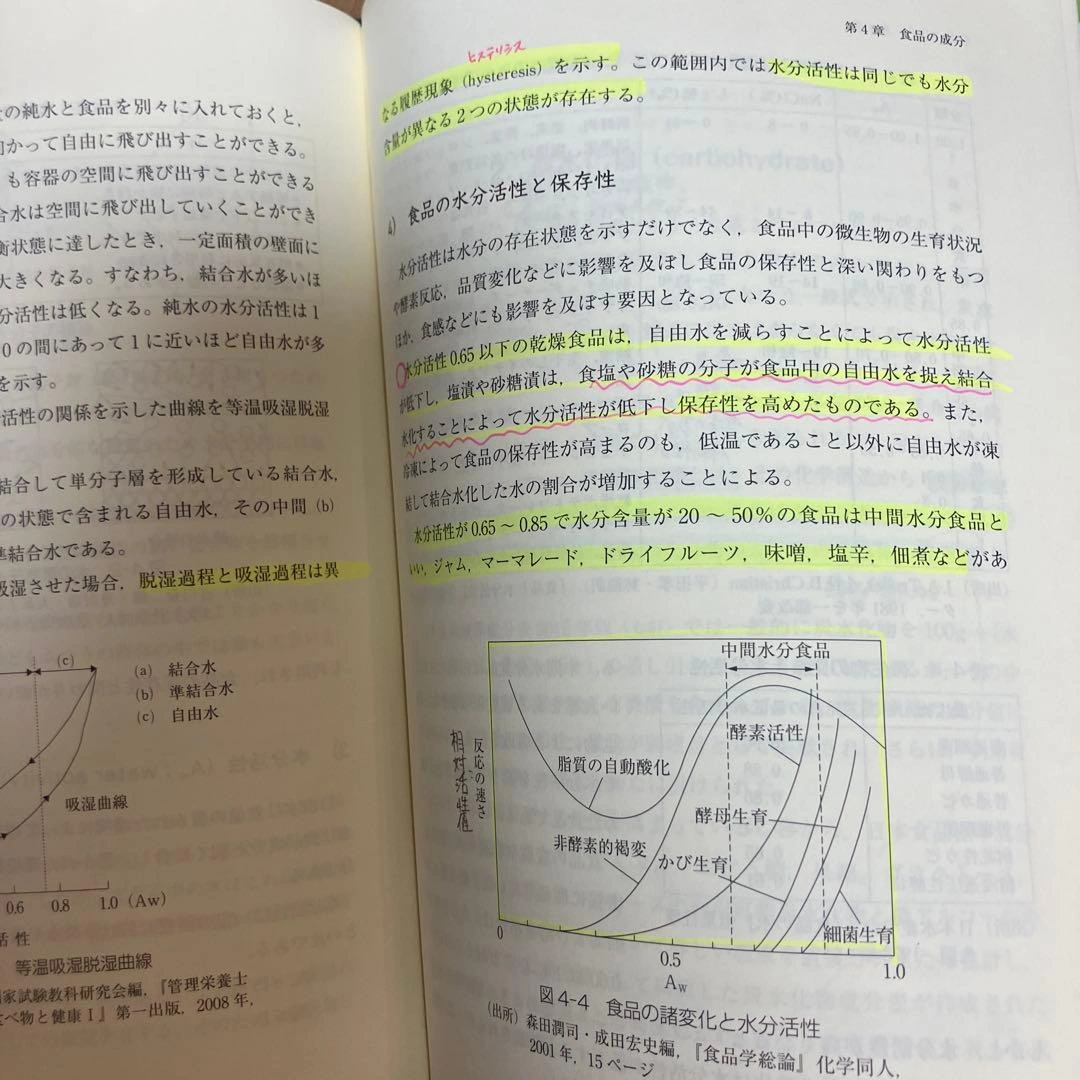 の純水と食品を別々に入れておくと,
かって自由に飛び出すことができる。
も容器の空間に飛び出すことができる
合水は空間に飛び出していくことができ
衡状態に達したとき,一定面積の壁面に
大きくなる。すなわち,結合水が多いほ
分活性は低くなる。純水の水分活性は1
0の間にあって1に近いほど自由水が多
を示す。
活性の関係を示した曲線を等温吸湿脱湿
結合して単分子層を形成している結合水,
の状態で含まれる自由水,その中間(b)
準結合水である。
吸湿させた場合,脱湿過程と吸湿過程は異
(c)
(a) 結合水
(b) 準結合水
(c) 自由水
吸湿曲線
0.6 0.8 1.0 (Aw)
活 性
等温吸湿脱湿曲線
家試験教科研究会編,『管理栄養士
べ物と健康Ⅰ』第一出版,2008年,
第4章 食品の成分
ヒステリシス
なる履歴現象(hysteresis)を示す。この範囲内では水分活性は同じでも水分
含量が異なる2つの状態が存在する。
4) 食品の水分活性と保存性
水分活性は水分の存在状態を示すだけでなく,食品中の微生物の生育状況
や酵素反応,品質変化などに影響を及ぼし食品の保存性と深い関わりをもつ
ほか,食感などにも影響を及ぼす要因となっている。
水分活性0.65以下の乾燥食品は,自由水を減らすことによって水分活性
が低下し,塩漬や砂糖漬は,食塩や砂糖の分子が食品中の自由水を捉え結合
水化することによって水分活性が低下し保存性を高めたものである。また,
冷凍によって食品の保存性が高まるのも,低温であること以外に自由水が凍
結して結合水化した水の割合が増加することによる。
水分活性が0.65〜0.85で水分含量が20〜50%の食品は中間水分食品と
いい,ジャム,マーマレード,ドライフルーツ,味噌,塩辛,佃煮などがあ
中間水分食品
反応の速さ
相対活性値
脂質の自動酸化
酵素活性
非酵素的褐変
酵母生育
かび生育
細菌生育
0 0.5 1.0
Aw
図4-4 食品の諸変化と水分活性
(出所)森田潤司・成田宏史編,『食品学総論』化学同人,
2001年,15ページ